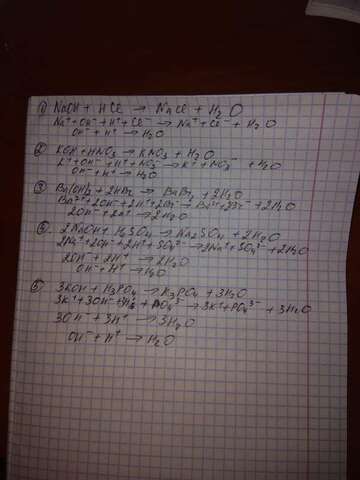 ① NaOH + HCl → NaCl + H₂O
Na⁺ + OH⁻ + H⁺ + Cl⁻ → Na⁺ + Cl⁻ + H₂O
OH⁻ + H⁺ → H₂O
② KOH + HNO₃ → KNO₃ + H₂O
K⁺ + OH⁻ + H⁺ + NO₃⁻ → K⁺ + NO₃⁻ + H₂O
OH⁻ + H⁺ → H₂O
③ Ba(OH)₂ + 2HBr → BaBr₂ + 2H₂O
Ba²⁺ + 2OH⁻ + 2H⁺ + 2Br⁻ → Ba²⁺ + 2Br⁻ + 2H₂O
2OH⁻ + 2H⁺ → 2H₂O
④ 2NaOH + H₂SO₄ → Na₂SO₄ + 2H₂O
2Na⁺ + 2OH⁻ + 2H⁺ + SO₄²⁻ → 2Na⁺ + SO₄²⁻ + 2H₂O
2OH⁻ + 2H⁺ → 2H₂O
OH⁻ + H⁺ → H₂O
⑤ 3KOH + H₃PO₄ → K₃PO₄ + 3H₂O
3K⁺ + 3OH⁻ + 3H⁺ + PO₄³⁻ → 3K⁺ + PO₄³⁻ + 3H₂O
3OH⁻ + 3H⁺ → 3H₂O
OH⁻ + H⁺ → H₂O